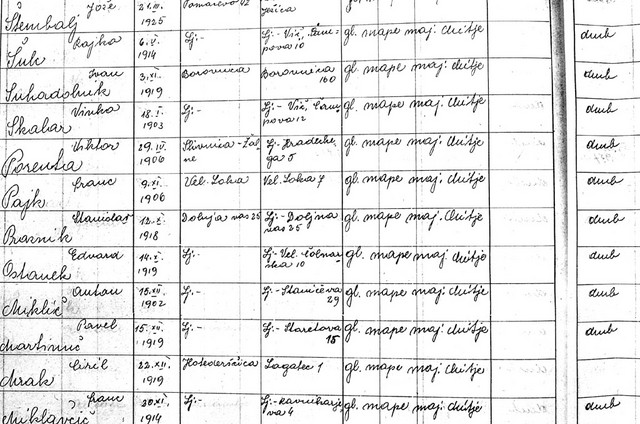 Štembalj Jože 21.III. 1925 Ljubljana gl. mape maj. dutje
Šuc Rajko 6.V. 1914 Lj:- Lj- Vič, gl. mape maj. dutje dmb
Suhadolnik Ivan 3.XI. 1919 Borovnica Borovnica 160 gl. mape maj. dutje dmb
Skalar Vinko 18.I. 1903 Lj:- Lj- Vič, gl. mape maj. dutje dmb
Porenta Viktor 29.IV. 1906 Slivnica - Lj. Hradeckega 5 gl. mape maj. dutje dmb
Pajk Franc 9.XI. 1906 Vel. Loka Vel. Loka 7 gl. mape maj. dutje dmb
Praznik Stanislav 12.I. 1918 Dolnja vas 25 Lj- Dolnja vas 25 gl. mape maj. dutje dmb
Ostanek Edvard 14.I. 1919 Lj:- Lj- Vel. čolnarska 10 gl. mape maj. dutje dmb
Miklič Anton 15.XII. 1902 Lj:- Lj.- Staničeva 29 gl. mape maj. dutje dmb
Martinuč Pavel 15.XII. 1919 Lj:- Lj- Staretova 15 gl. mape maj. dutje dmb
Mrak Ciril 22.XII. 1919 Hotederščica Logatec 1 gl. mape maj. dutje dmb
Miklavčič Franc 30.XI. 1914 Lj:- Lj.- Ravniharjeva 4 gl. mape maj. dutje dmb